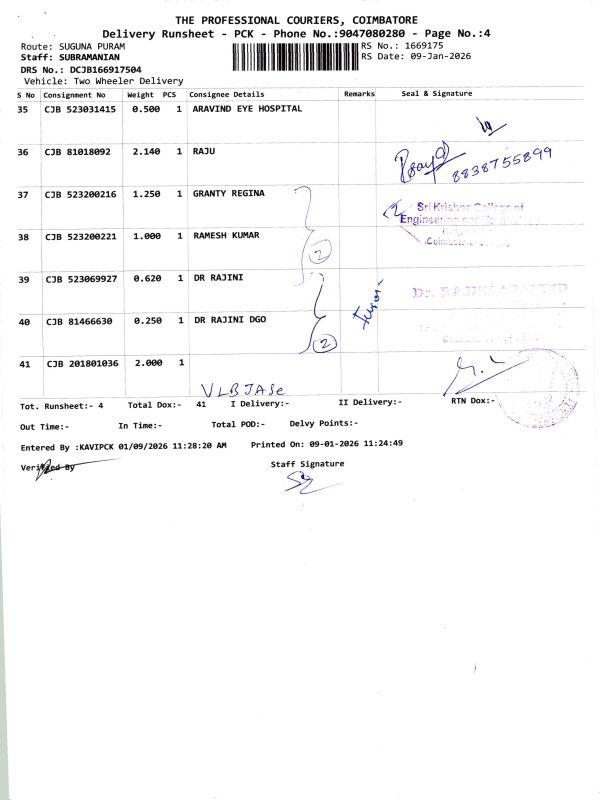 THE PROFESSIONAL COURIERS, COIMBATORE
Delivery Runsheet - PCK - Phone No.:9047080280 - Page No.:4
Route: SUGUNA PURAM RS No.: 1669175
Staff: SUBRAMANIAN RS Date: 09-Jan-2026
DRS No.: DCJB166917504
Vehicle: Two Wheeler Delivery
S No Consignment No Weight PCS Consignee Details Remarks Seal & Signature
35 CJB 523031415 0.500 1 ARAVIND EYE HOSPITAL
36 CJB 81018092 2.140 1 RAJU
8838755899
37 CJB 523200216 1.250 1 GRANTY REGINA
Sri Krishna College of
Engineering and
38 CJB 523200221 1.000 1 RAMESH KUMAR
2
39 CJB 523069927 0.620 1 DR RAJINI
Dr.
40 CJB 81466630 0.250 1 DR RAJINI DGO
2
41 CJB 201801036 2.000 1
VLBJASc
Tot. Runsheet:- 4 Total Dox:- 41 I Delivery:- II Delivery:- RTN Dox:-
Out Time:- In Time:- Total POD:- Delvy Points:-
Entered By :KAVIPCK 01/09/2026 11:28:20 AM Printed On: 09-01-2026 11:24:49
Verified By Staff Signature